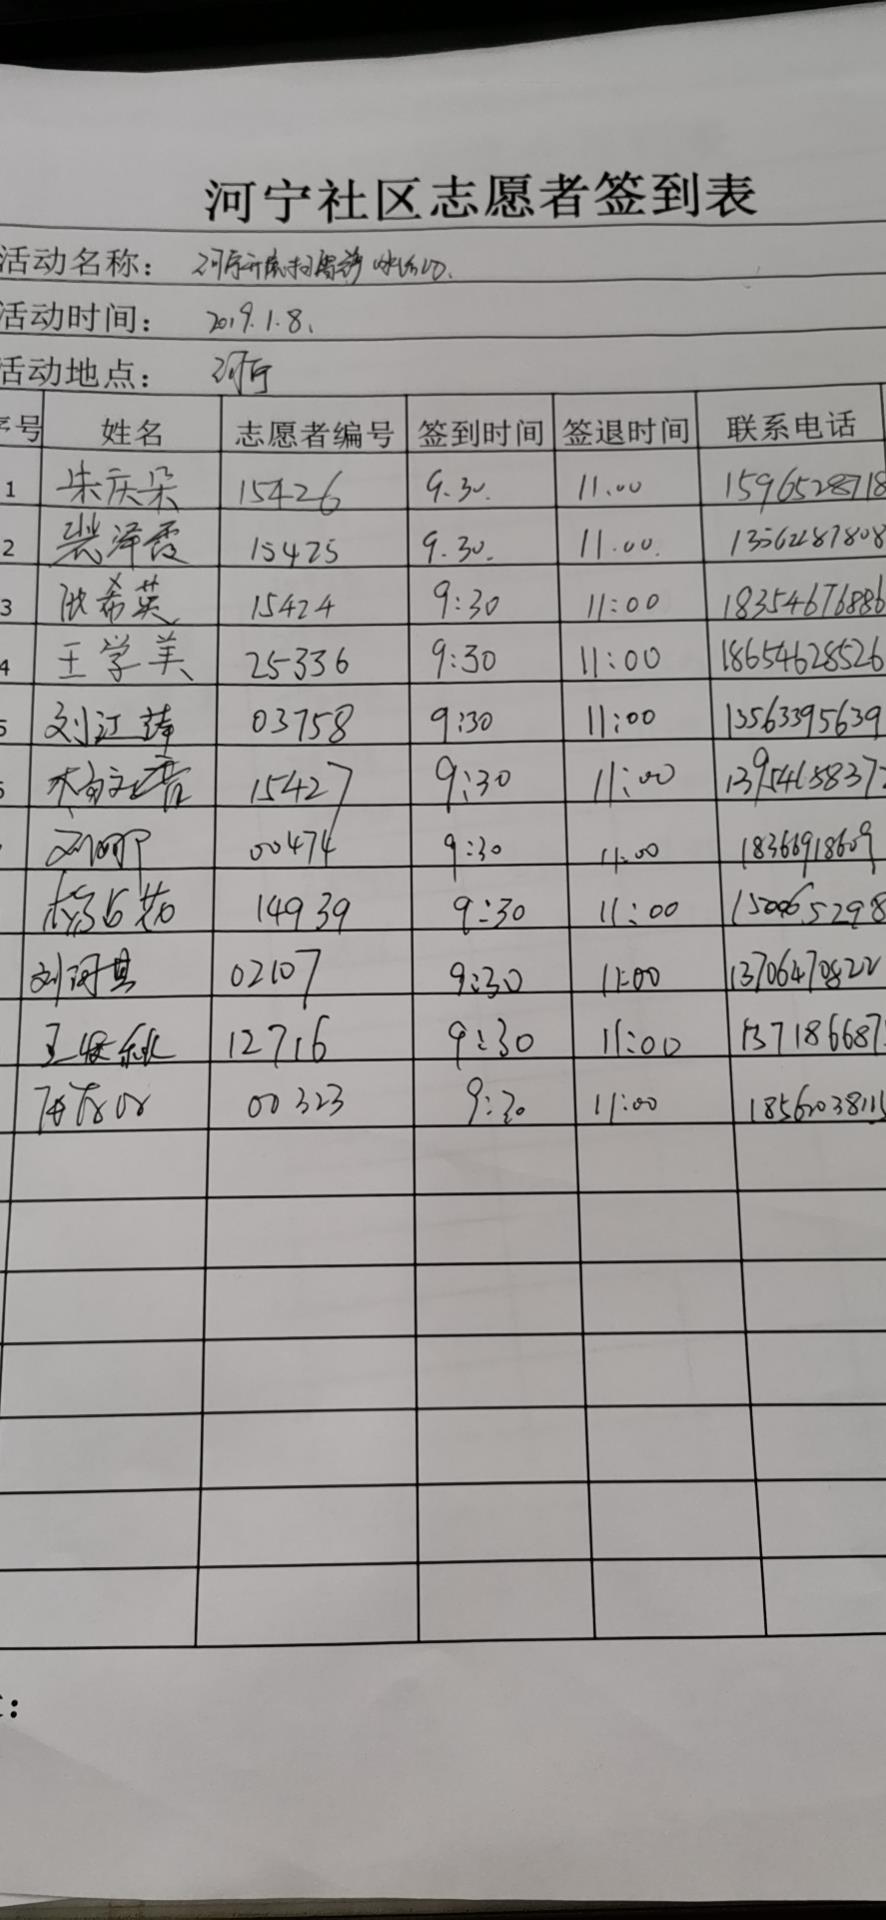 河宁社区志愿者签到表
活动名称：
活动时间： 2019.1.8.
活动地点： 河宁
序号 姓名 志愿者编号 签到时间 签退时间 联系电话
1 朱庆朵 15426 9.30. 11.00 15965287718
2 裴泽霞 15425 9.30. 11.00. 13562287808
3 张希英 15424 9:30 11:00 18354676886
4 王学美 25336 9:30 11:00 18654628526
5 刘江涛 03758 9:30 11:00 13563395639
15427 9:30 11:00
00474 9:30 11:00 18366918609
14939 9:30 11:00
刘河其 02107 9:30 11:00 13706470822
12716 9:30 11:00
00323 9:30 11:00